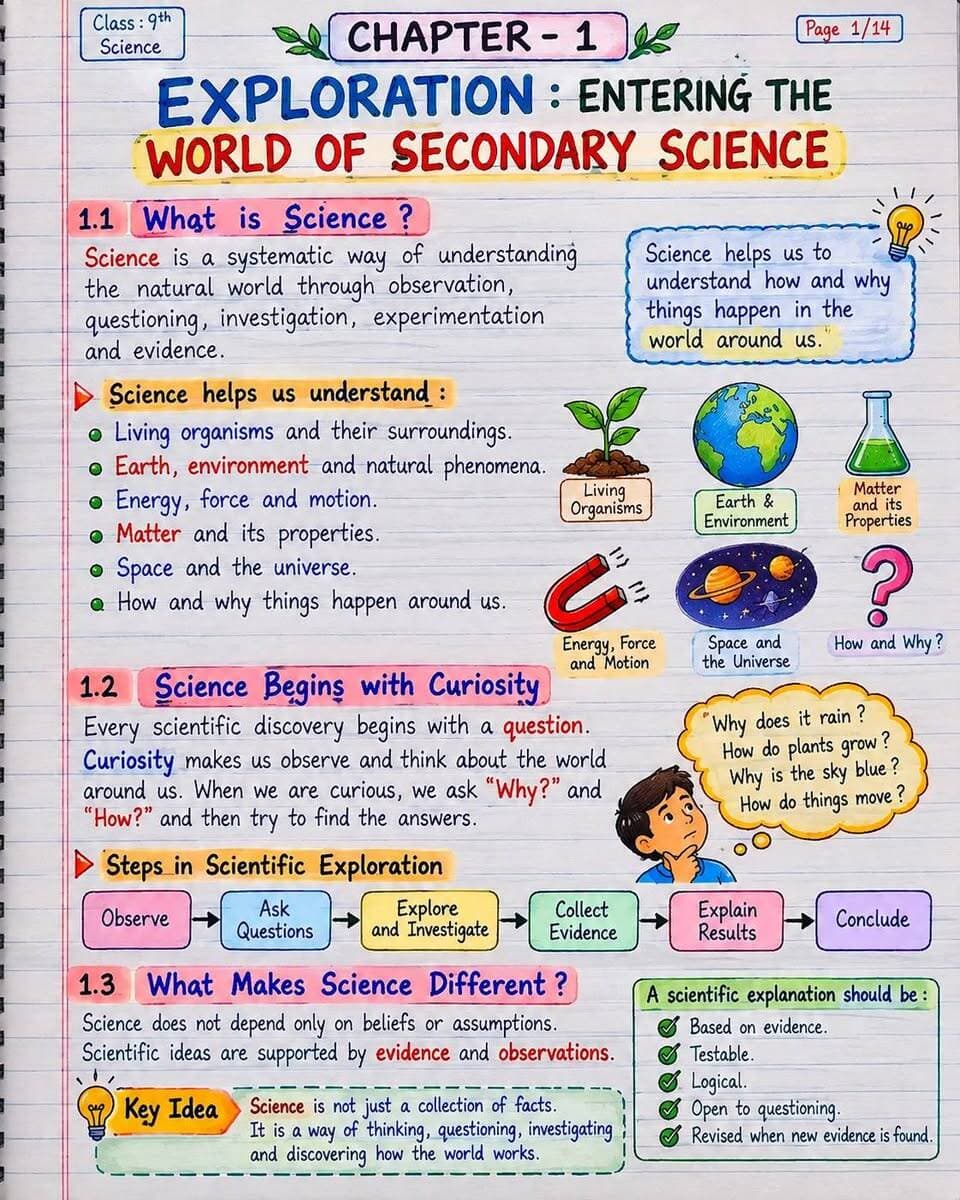 Class : 9th
Science
CHAPTER - 1
Page 1/14
EXPLORATION : ENTERING THE
WORLD OF SECONDARY SCIENCE
1.1 What is Science ?
Science is a systematic way of understanding
the natural world through observation,
questioning, investigation, experimentation
and evidence.
Science helps us to
understand how and why
things happen in the
world around us."
Science helps us understand :
Living organisms and their surroundings.
Earth, environment and natural phenomena.
Energy, force and motion.
Matter and its properties.
Space and the universe.
How and why things happen around us.
Living
Organisms
Earth &
Environment
Matter
and its
Properties
Energy, Force
and Motion
Space and
the Universe
How and Why ?
1.2 Science Begins with Curiosity
Every scientific discovery begins with a question.
Curiosity makes us observe and think about the world
around us. When we are curious, we ask "Why?" and
"How?" and then try to find the answers.
"Why does it rain ?
How do plants grow ?
Why is the sky blue ?
How do things move ?
Steps in Scientific Exploration
Observe
Ask
Questions
Explore
and Investigate
Collect
Evidence
Explain
Results
Conclude
1.3 What Makes Science Different ?
Science does not depend only on beliefs or assumptions.
Scientific ideas are supported by evidence and observations.
Key Idea
Science is not just a collection of facts.
It is a way of thinking, questioning, investigating
and discovering how the world works.
A scientific explanation should be :
Based on evidence.
Testable.
Logical.
Open to questioning.
Revised when new evidence is found.